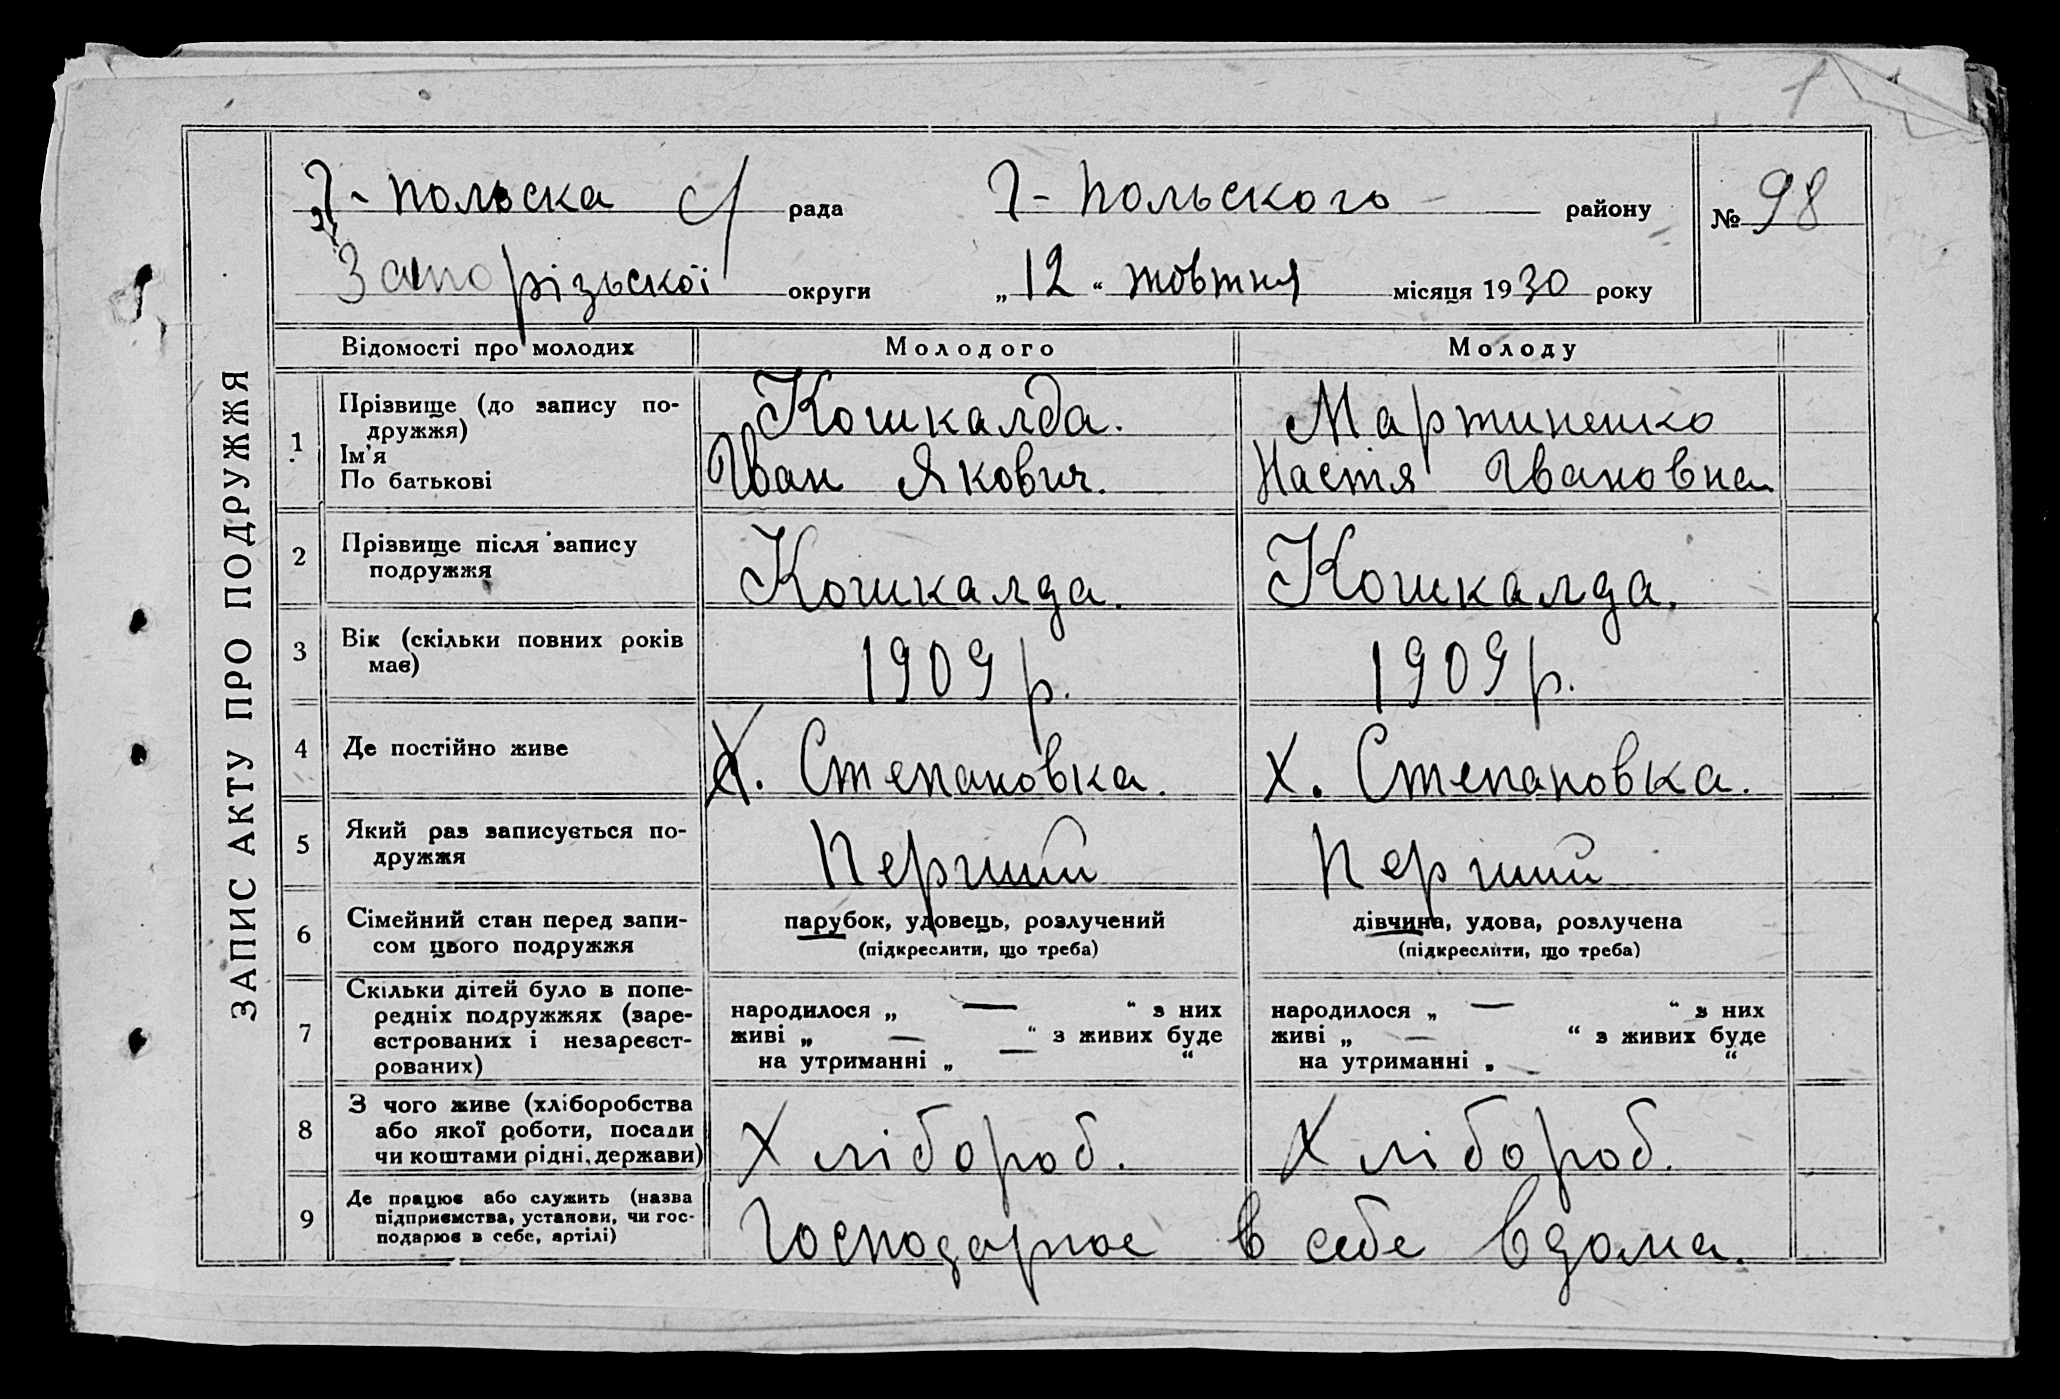 Г-польска с/ рада Г-польского району № 98
Запорізької округи „12“ жовтня місяця 1930 року
ЗАПИС АКТУ ПРО ПОДРУЖЖЯ
Відомості про молодих Молодого Молоду
1 Прізвище (до запису по-
дружжя)
Ім'я
По батькові
Кошкалда.
Іван Якович.
Мартиненко
Настя Івановна
2 Прізвище після запису
подружжя
Кошкалда. Кошкалда.
3 Вік (скільки повних років
має)
1909 р. 1909 р.
4 Де постійно живе Х. Степановка. Х. Степановка.
5 Який раз записується по-
дружжя
Перший Перший
6 Сімейний стан перед запи-
сом цього подружжя
парубок, удовець, розлучений
(підкреслити, що треба)
дівчина, удова, розлучена
(підкреслити, що треба)
7 Скільки дітей було в попе-
редніх подружжях (заре-
єстрованих і незареєст-
рованих)
народилося „ — “ з них
живі „ — “ з живих буде
на утриманні „ — “
народилося „ — “ з них
живі „ — “ з живих буде
на утриманні „ - “
8 З чого живе (хліборобства
або якої роботи, посади
чи коштами рідні, держави)
Хлібороб. Хлібороб.
9 Де працює або служить (назва
підприємства, установи, чи гос-
подарює в себе, артілі)
Господарює в себе вдома.